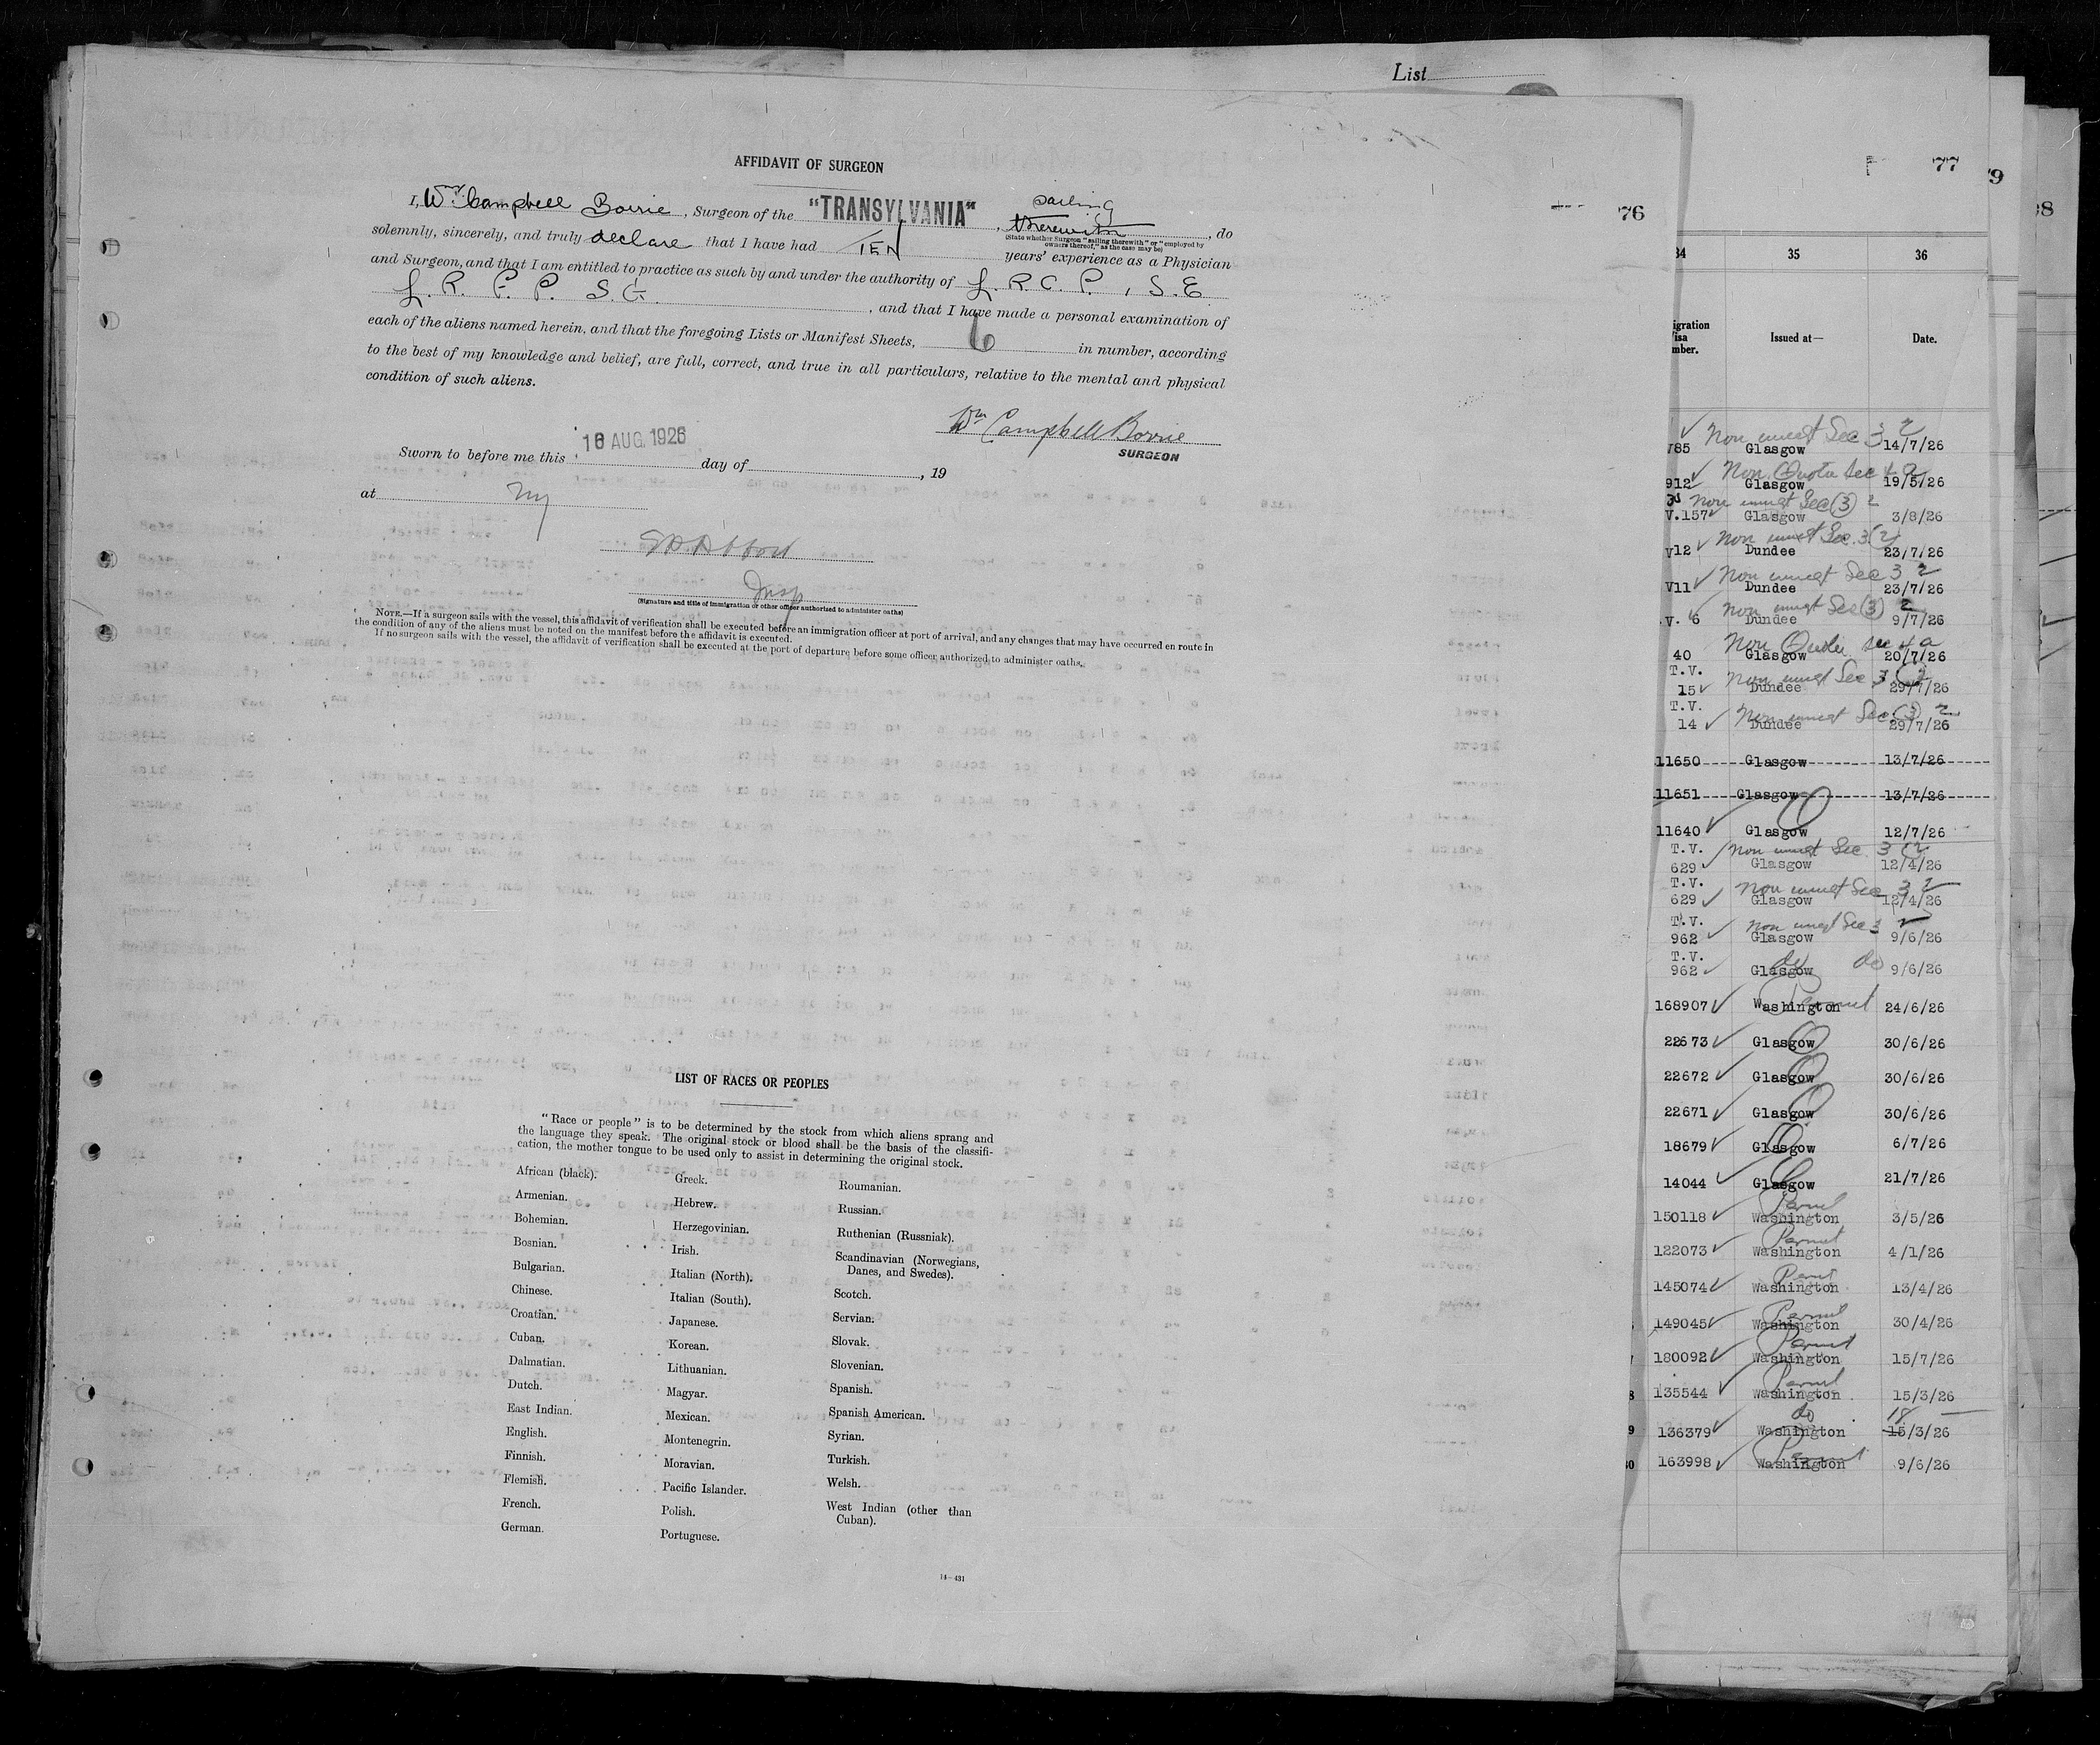 List
77
79
98
76
AFFIDAVIT OF SURGEON
I, Wm. Campbell Borrie, Surgeon of the "TRANSYLVANIA", sailing therewith, do
(State whether Surgeon "sailing therewith" or "employed by owners thereof," as the case may be)
solemnly, sincerely, and truly declare that I have had TEN years' experience as a Physician
and Surgeon, and that I am entitled to practice as such by and under the authority of L. R. C. P., S. E
L. R. F. P. S. G. , and that I have made a personal examination of
each of the aliens named herein, and that the foregoing Lists or Manifest Sheets, 6 in number, according
to the best of my knowledge and belief, are full, correct, and true in all particulars, relative to the mental and physical
condition of such aliens.
Wm Campbell Borrie
SURGEON
Sworn to before me this 16 AUG. 1926 day of , 19
at NY
Insp
(Signature and title of immigration or other officer authorized to administer oaths)
NOTE.—If a surgeon sails with the vessel, this affidavit of verification shall be executed before an immigration officer at port of arrival, and any changes that may have occurred en route in
the condition of any of the aliens must be noted on the manifest before the affidavit is executed.
If no surgeon sails with the vessel, the affidavit of verification shall be executed at the port of departure before some officer authorized to administer oaths.
LIST OF RACES OR PEOPLES
"Race or people" is to be determined by the stock from which aliens sprang and
the language they speak. The original stock or blood shall be the basis of the classifi-
cation, the mother tongue to be used only to assist in determining the original stock.
African (black).
Armenian.
Bohemian.
Bosnian.
Bulgarian.
Chinese.
Croatian.
Cuban.
Dalmatian.
Dutch.
East Indian.
English.
Finnish.
Flemish.
French.
German.
Greek.
Hebrew.
Herzegovinian.
Irish.
Italian (North).
Italian (South).
Japanese.
Korean.
Lithuanian.
Magyar.
Mexican.
Montenegrin.
Moravian.
Pacific Islander.
Polish.
Portuguese.
Roumanian.
Russian.
Ruthenian (Russniak).
Scandinavian (Norwegians,
Danes, and Swedes).
Scotch.
Servian.
Slovak.
Slovenian.
Spanish.
Spanish American.
Syrian.
Turkish.
Welsh.
West Indian (other than
Cuban).
14—431
34 35 36
igration
isa
mber.
Issued at—
Date.
Non immgt Sec 3 2
V85 Glasgow 14/7/26
Non Quota Sec 4 a
912 Glasgow 19/5/26
Non immgt Sec (3) 2
V.157 Glasgow 3/8/26
Non immgt Sec. 3 (2
V12 Dundee 23/7/26
Non immgt Sec 3 2
V11 Dundee 23/7/26
Non immgt Sec (3) 2
V. 6 Dundee 9/7/26
Non Quota sec 4 a
40 Glasgow 20/7/26
T.V. Non immgt Sec 3 (2
15 Dundee 29/7/26
T.V. Non immgt Sec (3) 2
14 Dundee 29/7/26
11650 Glasgow 13/7/26
11651 Glasgow 13/7/26
11640 Glasgow 12/7/26
T.V. Non immgt Sec 3 (2
629 Glasgow 12/4/26
T.V. Non immgt Sec 3 2
629 Glasgow 12/4/26
T.V. Non immgt Sec 3 2
962 Glasgow 9/6/26
T.V. do do
962 Glasgow 9/6/26
168907 Washington Permit 24/6/26
22673 Glasgow 30/6/26
22672 Glasgow 30/6/26
22671 Glasgow 30/6/26
18679 Glasgow 6/7/26
14044 Glasgow 21/7/26
Permit
150118 Washington 3/5/26
Permit
122073 Washington 4/1/26
Permit
145074 Washington 13/4/26
Permit
149045 Washington 30/4/26
Permit
180092 Washington 15/7/26
Permit
135544 Washington 15/3/26
do 18
136379 Washington 15/3/26
Permit
163998 Washington 9/6/26